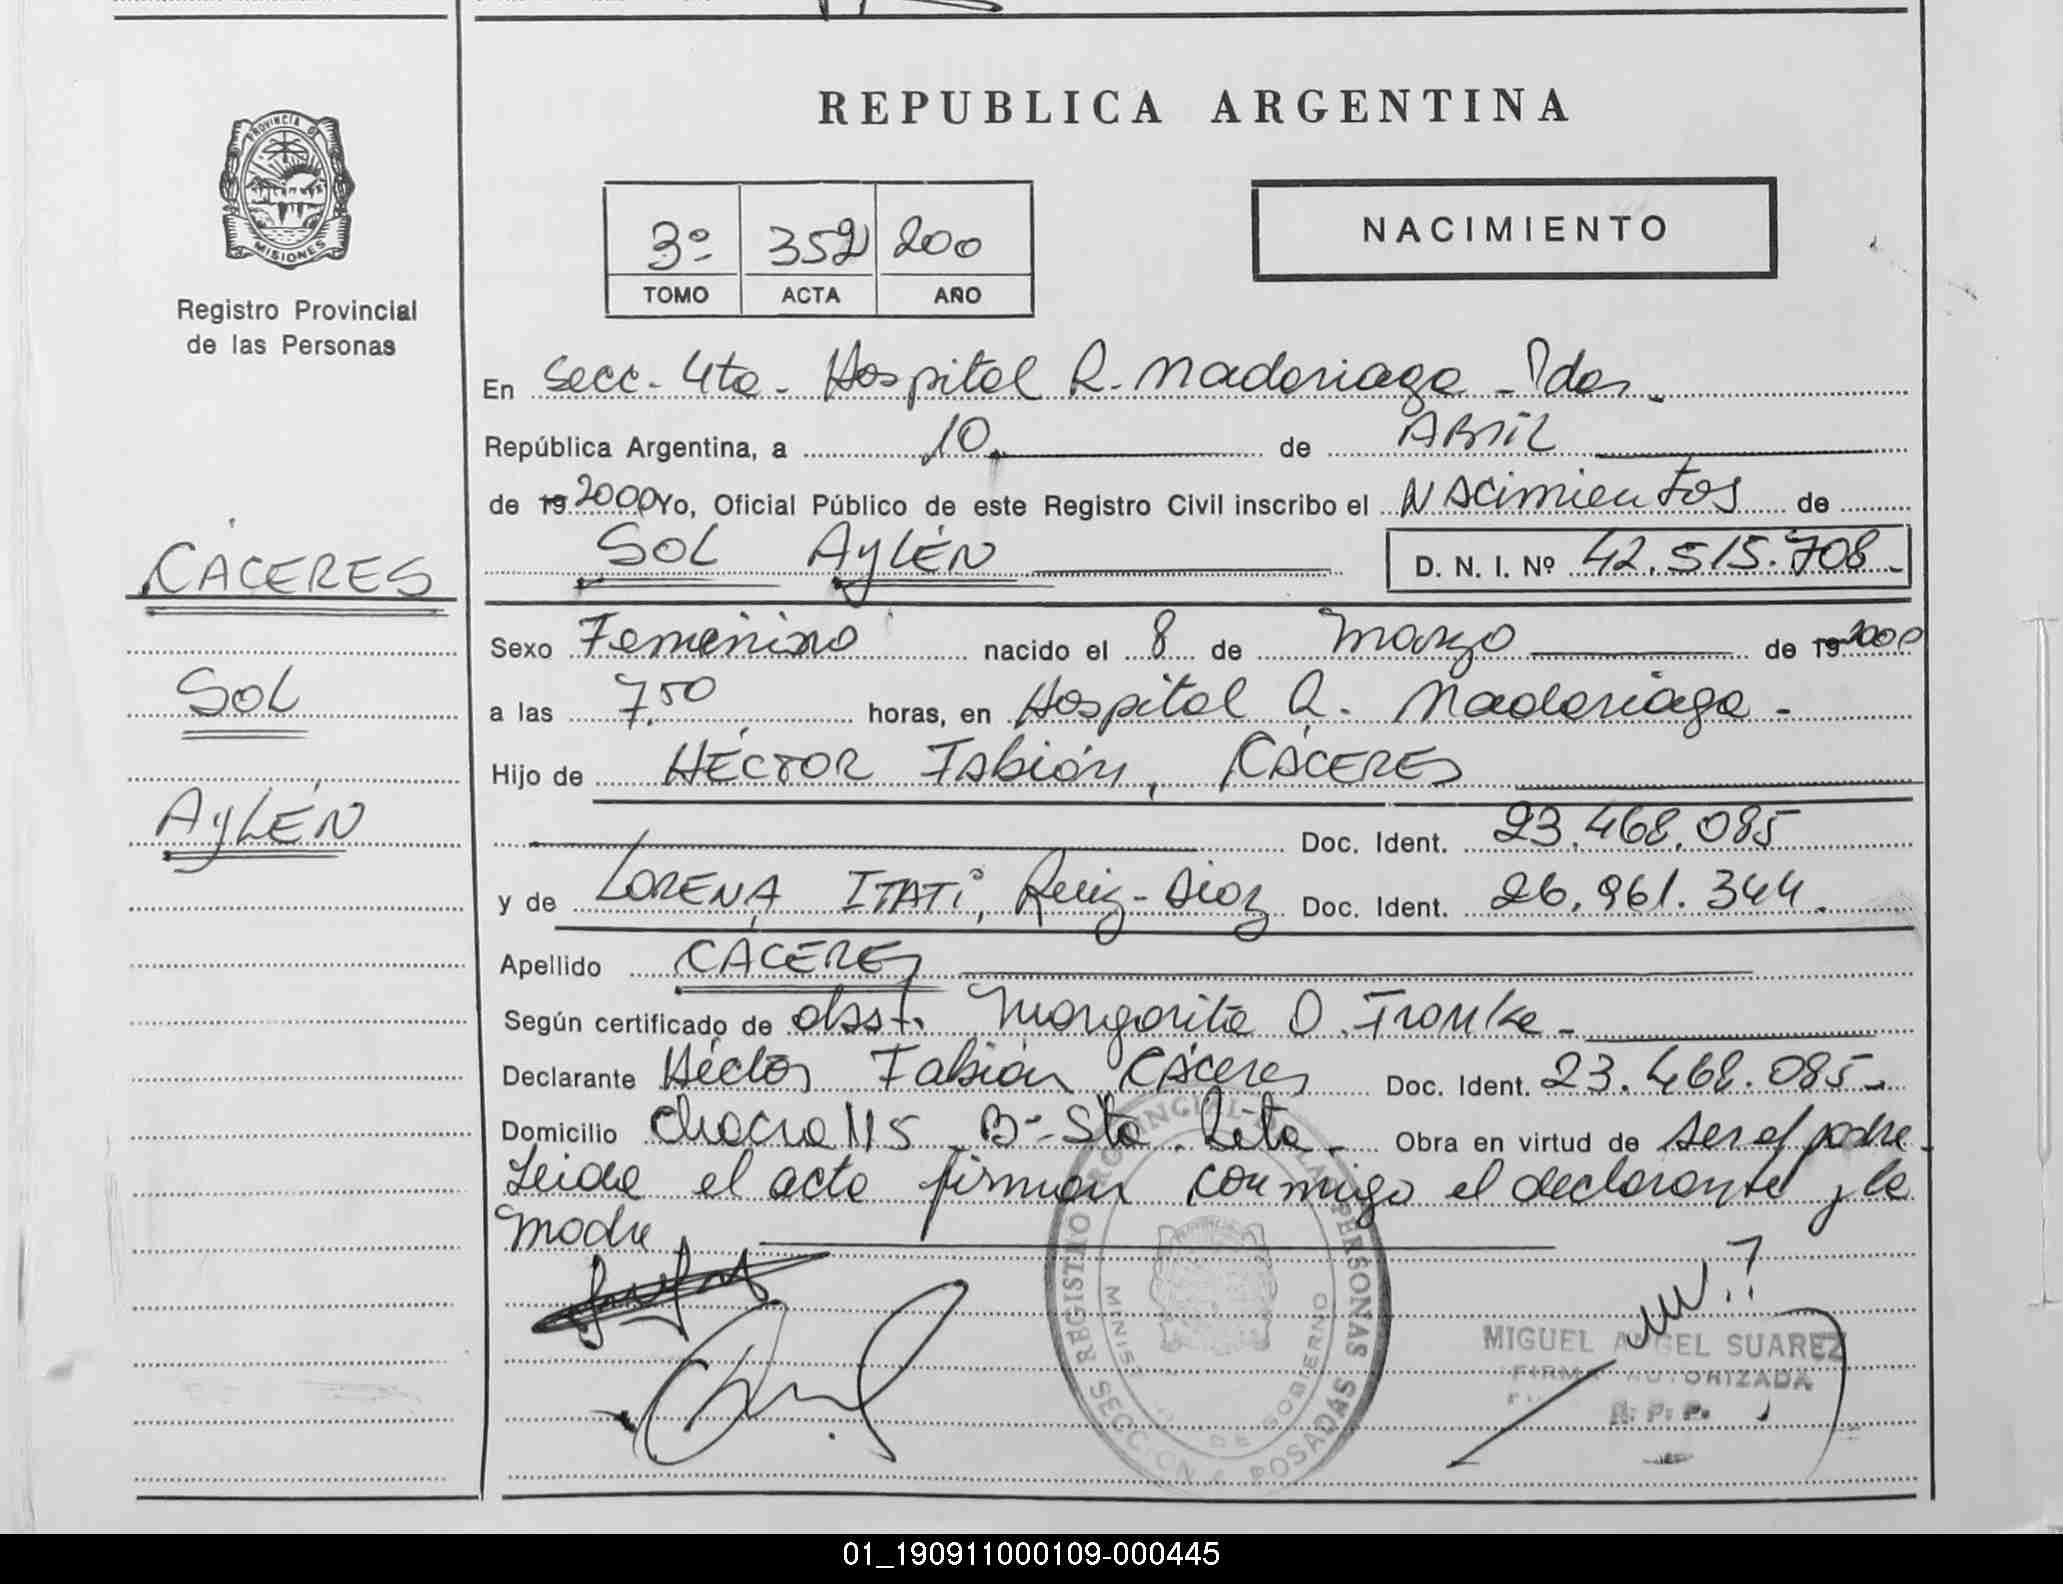 REPUBLICA ARGENTINA
PROVINCIA DE
MISIONES
Registro Provincial
de las Personas
3º 352 200
TOMO ACTA AÑO
NACIMIENTO
En Secc. 4ta - Hospital R. Madariaga - Pdas.
República Argentina, a 10 de Abril
de 19 2000 Yo, Oficial Público de este Registro Civil inscribo el Nacimientos de
SOL AyLÉN D. N. I. Nº 42.515.708-
CÁCERES
SOL
AyLÉN
Sexo Femenino nacido el 8 de Marzo de 19 2000
a las 7,50 horas, en Hospital R. Madariaga -
Hijo de HÉCTOR Fabián, CÁCERES
Doc. Ident. 23.468.085
y de LORENA ITATÍ, Ruiz-Diaz Doc. Ident. 26.961.344.
Apellido CÁCERES
Según certificado de obst. Margarita O. Franke -
Declarante Héctor Fabián Cáceres Doc. Ident. 23.468.085-
Domicilio Chacra 115 Bº Sta. Rita - Obra en virtud de ser el padre -
Leida el acta firman conmigo el declarante y la
Madre
REGISTRO PROVINCIAL DE LAS PERSONAS
MINIST DE GOBIERNO
SECCION POSADAS
MIGUEL ANGEL SUAREZ
FIRMA AUTORIZADA
R. P. P.
01_190911000109-000445